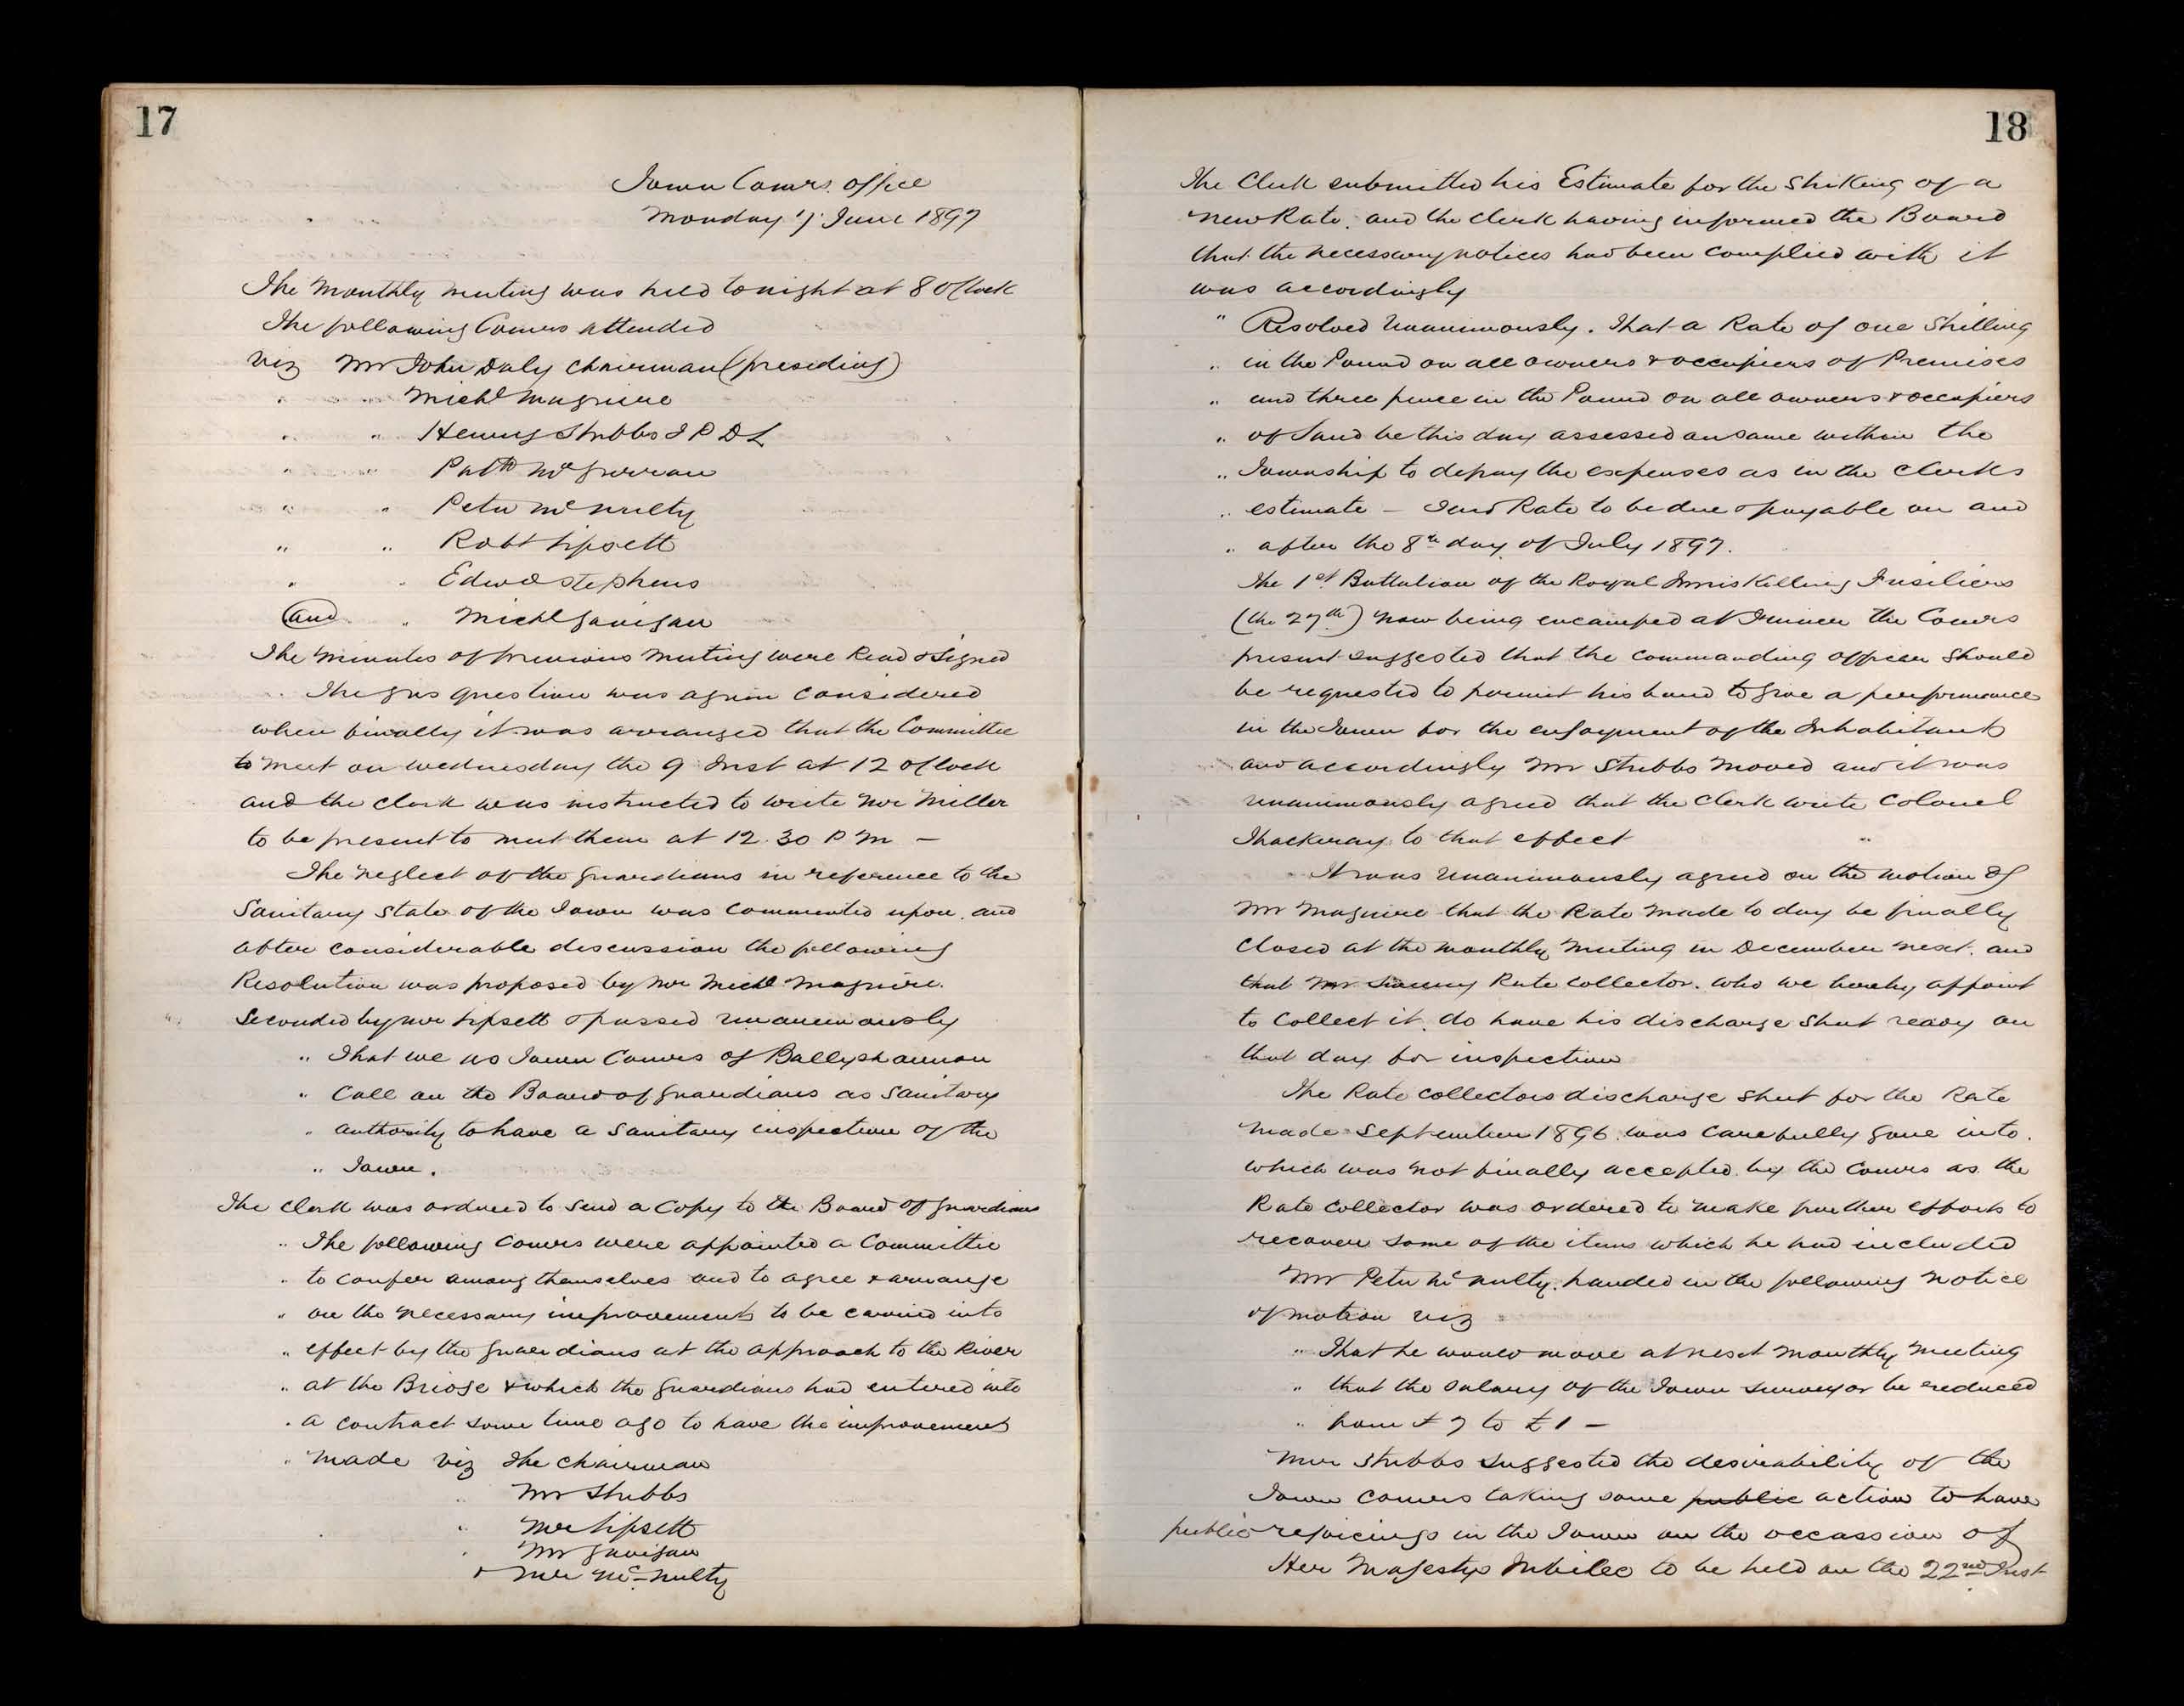 17
Town Comrs. Office
Monday 7 June 1897
The Monthly Meeting was held tonight at 8 O'Clock
The following Comrs attended
Viz Mr John Daly Chairman (presiding)
" " Michl Maguire
" " Henry Stubbs J P D L
" " Patk McGurran
" " Peter McNulty
" " Robt Lipsett
" " Edwd Stephens
and " Michl Gavigan
The Minutes of previous Meeting were Read & Signed
The gas question was again Considered
when finally it was arranged that the Committee
to meet on Wednesday the 9 Inst at 12 O'Clock
and the Clerk was instructed to write Mr Miller
to be present to meet them at 12.30 P M —
The neglect of the Guardians in reference to the
Sanitary State of the Town was Commented upon. and
after considerable discussion the following
Resolution was proposed by Mr Michl Maguire.
Seconded by Mr Lipsett & passed unanimously
" That we as Town Comrs of Ballyshannon
" Call on the Board of Guardians as Sanitary
" authority to have a Sanitary inspection of the
" Town.
The Clerk was ordered to Send a Copy to the Board of Guardians
" The following Comrs were appointed a Committee
" to confer among themselves and to agree & arrange
" on the necessary improvements to be carried into
" effect by the Guardians at the approach to the River
" at the Bridge & which the Guardians had entered into
" a contract some time ago to have the improvements
" Made viz The Chairman
" Mr Stubbs
" Mr Lipsett
" Mr Gavigan
& Mr McNulty
18
The Clerk submitted his Estimate for the Striking of a
New Rate. and the Clerk having informed the Board
that the necessary notices had been complied with it
was accordingly
" Resolved Unanimously. That a Rate of one Shilling
" in the Pound on all owners & occupiers of Premises
" and three pence in the Pound on all owners & occupiers
" of Land be this day assessed on same within the
" Township to defray the expenses as in the Clerks
" estimate — Said Rate to be due & payable on and
" after the 8th day of July 1897.
The 1st Battalion of the Royal Inniskilling Fusiliers
(the 27th) now being encamped at Finner the Comrs
present suggested that the Commanding Officer Should
be requested to permit his band to give a performance
in the Town for the enjoyment of the Inhabitants
and accordingly Mr Stubbs Moved and it was
unanimously agreed that the Clerk write Colonel
Thackeray to that effect "
It was Unanimously agreed on the motion of
Mr Maguire that the Rate Made to day be finally
Closed at the monthly Meeting in December next. and
that Mr Rate Collector. who we hereby appoint
to Collect it. do have his discharge Sheet ready on
that day for inspection
The Rate Collectors discharge Sheet for the Rate
Made September 1896 was Carefully gone into.
which was not finally accepted by the Comrs as the
Rate Collector was ordered to make further efforts to
recover some of the items which he had included
Mr Peter McNulty. handed in the following notice
of motion viz
" That he would move at next Monthly Meeting
" that the Salary of the Town Surveyor be reduced
" from £7 to £1 —
Mr Stubbs Suggested the desirability of the
Town Comrs taking some public action to have
public rejoicings in the Town on the occassion of
Her Majestys Jubilee to be held on the 22nd Inst